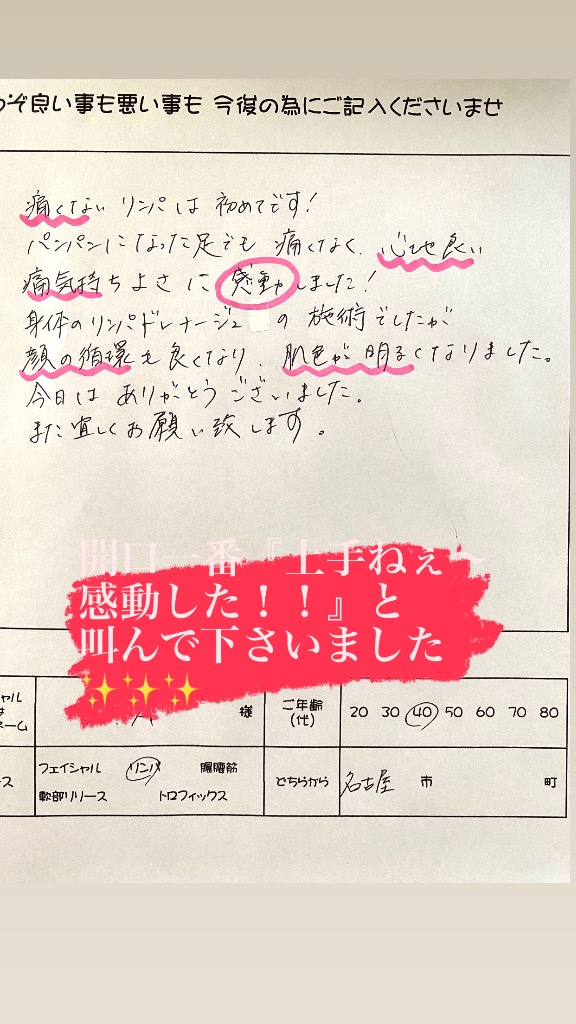 ぞ良い事も悪い事も 今後の為にご記入くださいませ
痛くない リンパは 初めてです！
パンパンになった足でも 痛くなく、心地良い
痛気持ちよさに 感動しました！
身体のリンパドレナージュ の 施術でしたが
顔の循環も良くなり、肌色が明るくなりました。
今日は ありがとうございました。
また宜しくお願い致します。
開口一番『上手ねぇ〜
感動した！！』と
叫んで下さいました
✨✨✨
様
ご年齢
(代)
20 30 40 50 60 70 80
フェイシャル リンパ 腸腰筋
軟部リリース トロフィックス
どちらから
名古屋 市 町